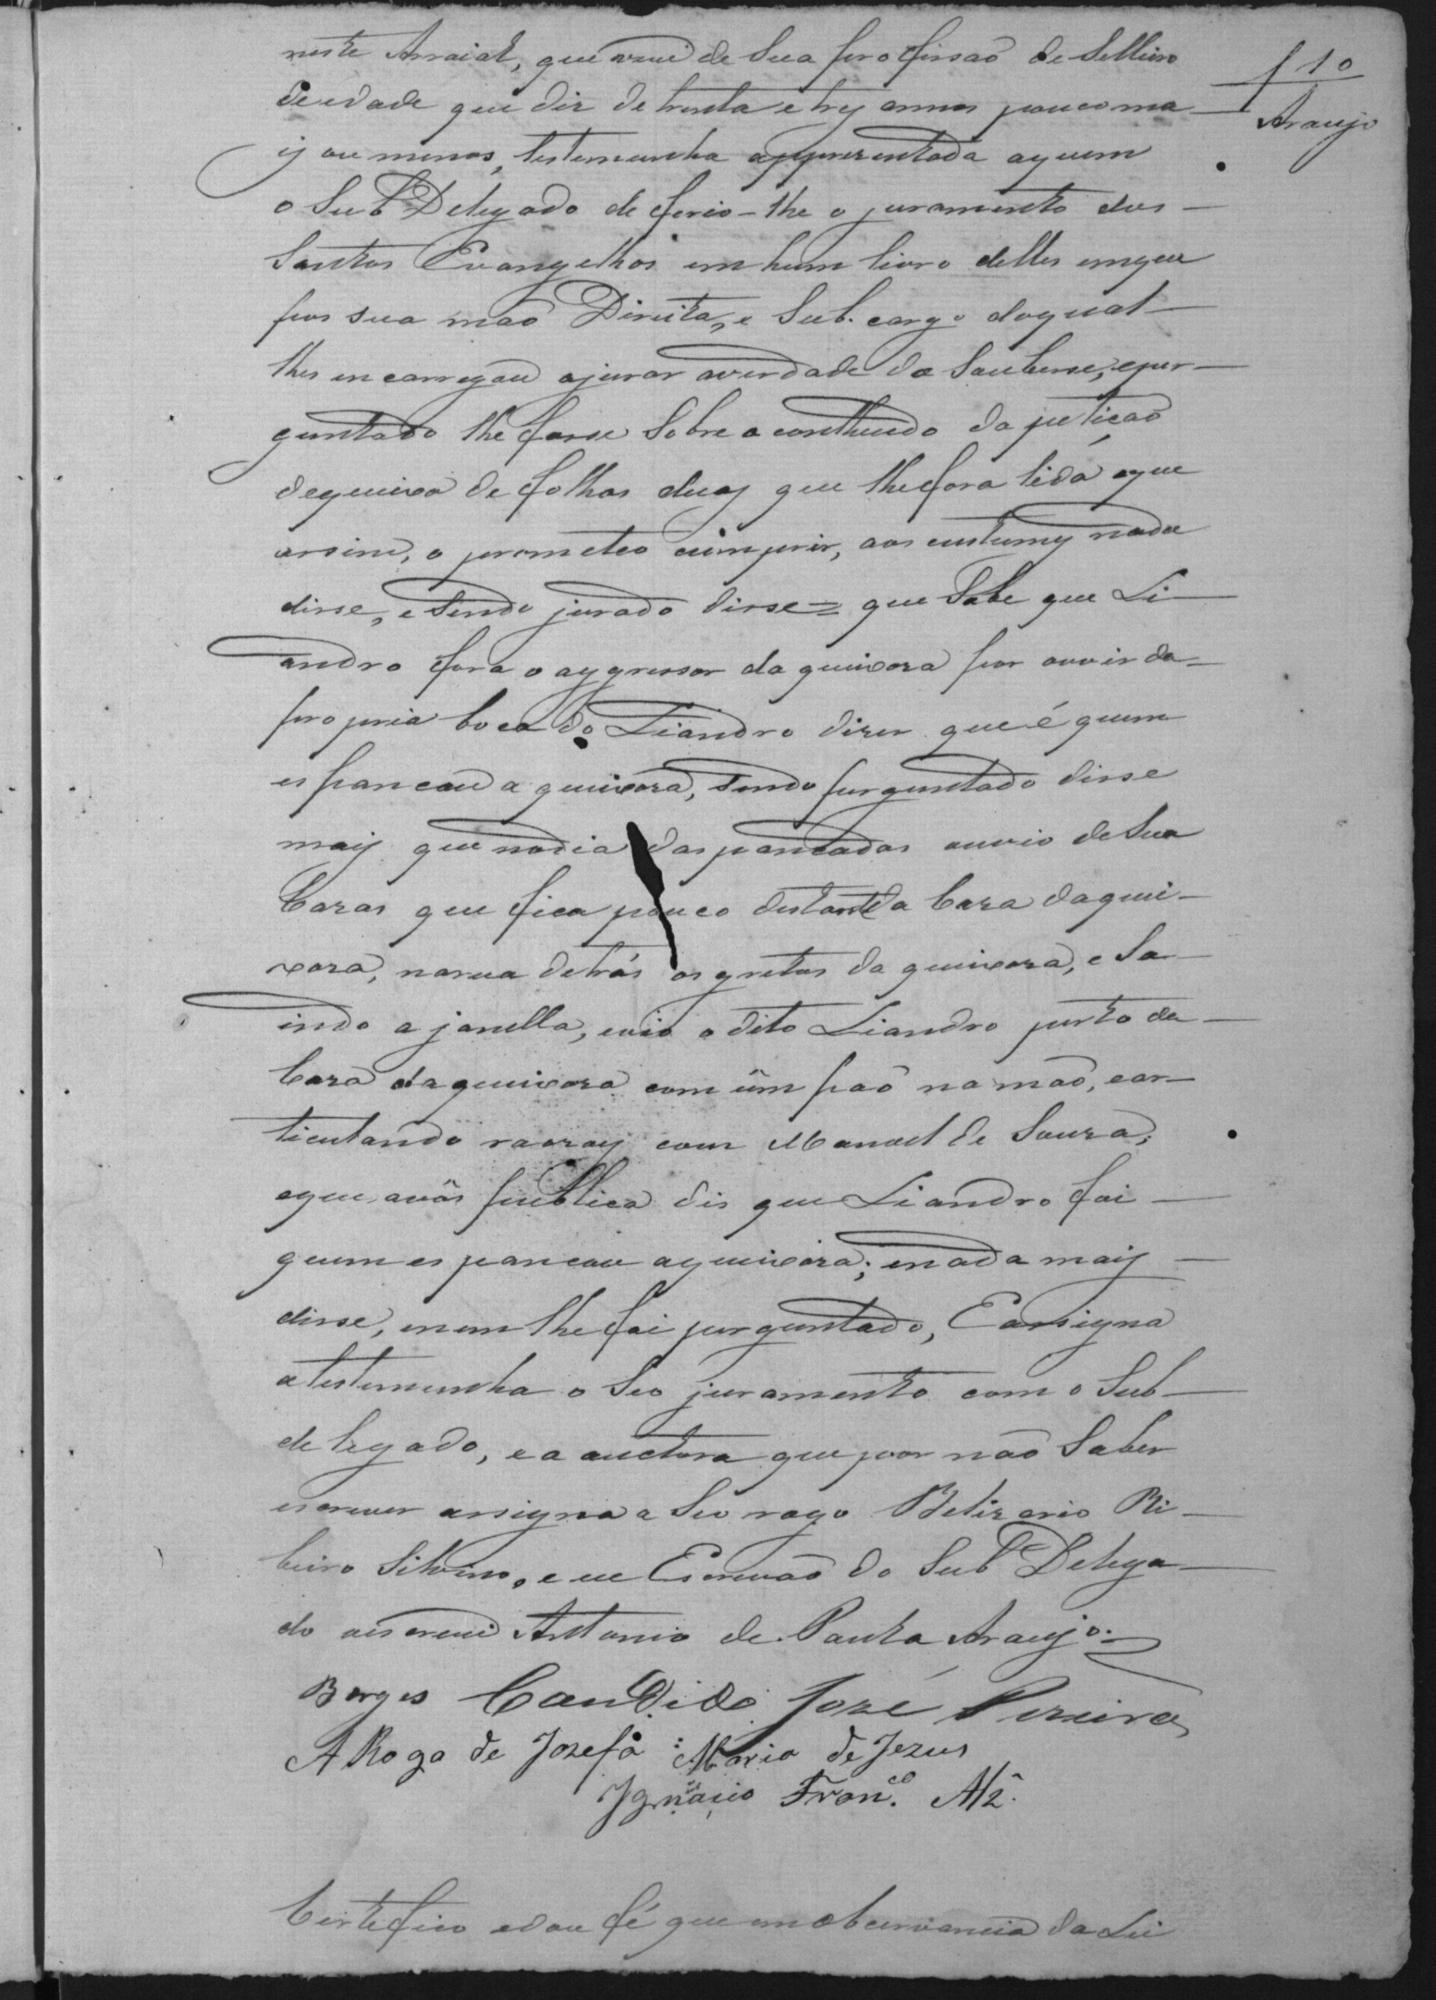 f 10
Araujo
neste Arraial, que vive de Sua profissaõ de Selleiro
de edade que diz de trinta e trez annos pouco ma
is ou menos, testemunha appresentada aquem
o Sub Delegado deferio-lhe o juramento dos
Santos Evangelhos em hum livro delles emque
pos sua maõ Direita, e Sub. cargo doqual
lhes encarregou ajurar averdade do Soubesse, eper-
guntado lhe fosse Sobre o conthiudo da petiçaõ
dequeixa de folhas duas que lhe fora lida eque
assim, o prometeo cumprir, aos custumes nada
disse, e Sendo jurado disse = que Sabe que Li
andro fora o aggressor da queixosa por ouvir da
propria boca do Liandro dizer que é quem
espancou a queixosa, Sendo perguntado disse
mais que nodia das pancadas ouvio de Sua
Cazas que fica pouco distante da Caza daquei-
xosa, narua detrás os gritos da queixosa, e Sa
indo a janella, vio o dito Liandro perto da
Caza daqueixosa com ûm páo na maõ, ear-
ticulando razoes com Manoel de Souza,
eque avós publica dis que Liandro foi
quem espancou aqueixosa; enada mais
disse, enem lhe foi perguntado, Eassigna
atestemunha o Seo juramento com o Sub-
delegado, e a auctora que por naõ Saber
escrever assigna a Seo rogo Belizario Ri-
beiro Silvino, e eu Escrivaõ do Sub Delega
do oescrevi Antonio de Paula Araujo.
Borges Candido José Pereira
A Rogo de Jozefa Maria de Jezus
Ignacio Fran.co Alz.
Certefico edou fé que em observancia da Lei